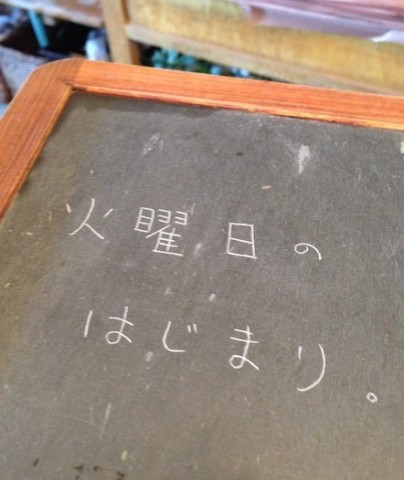 火曜日の
はじまり。